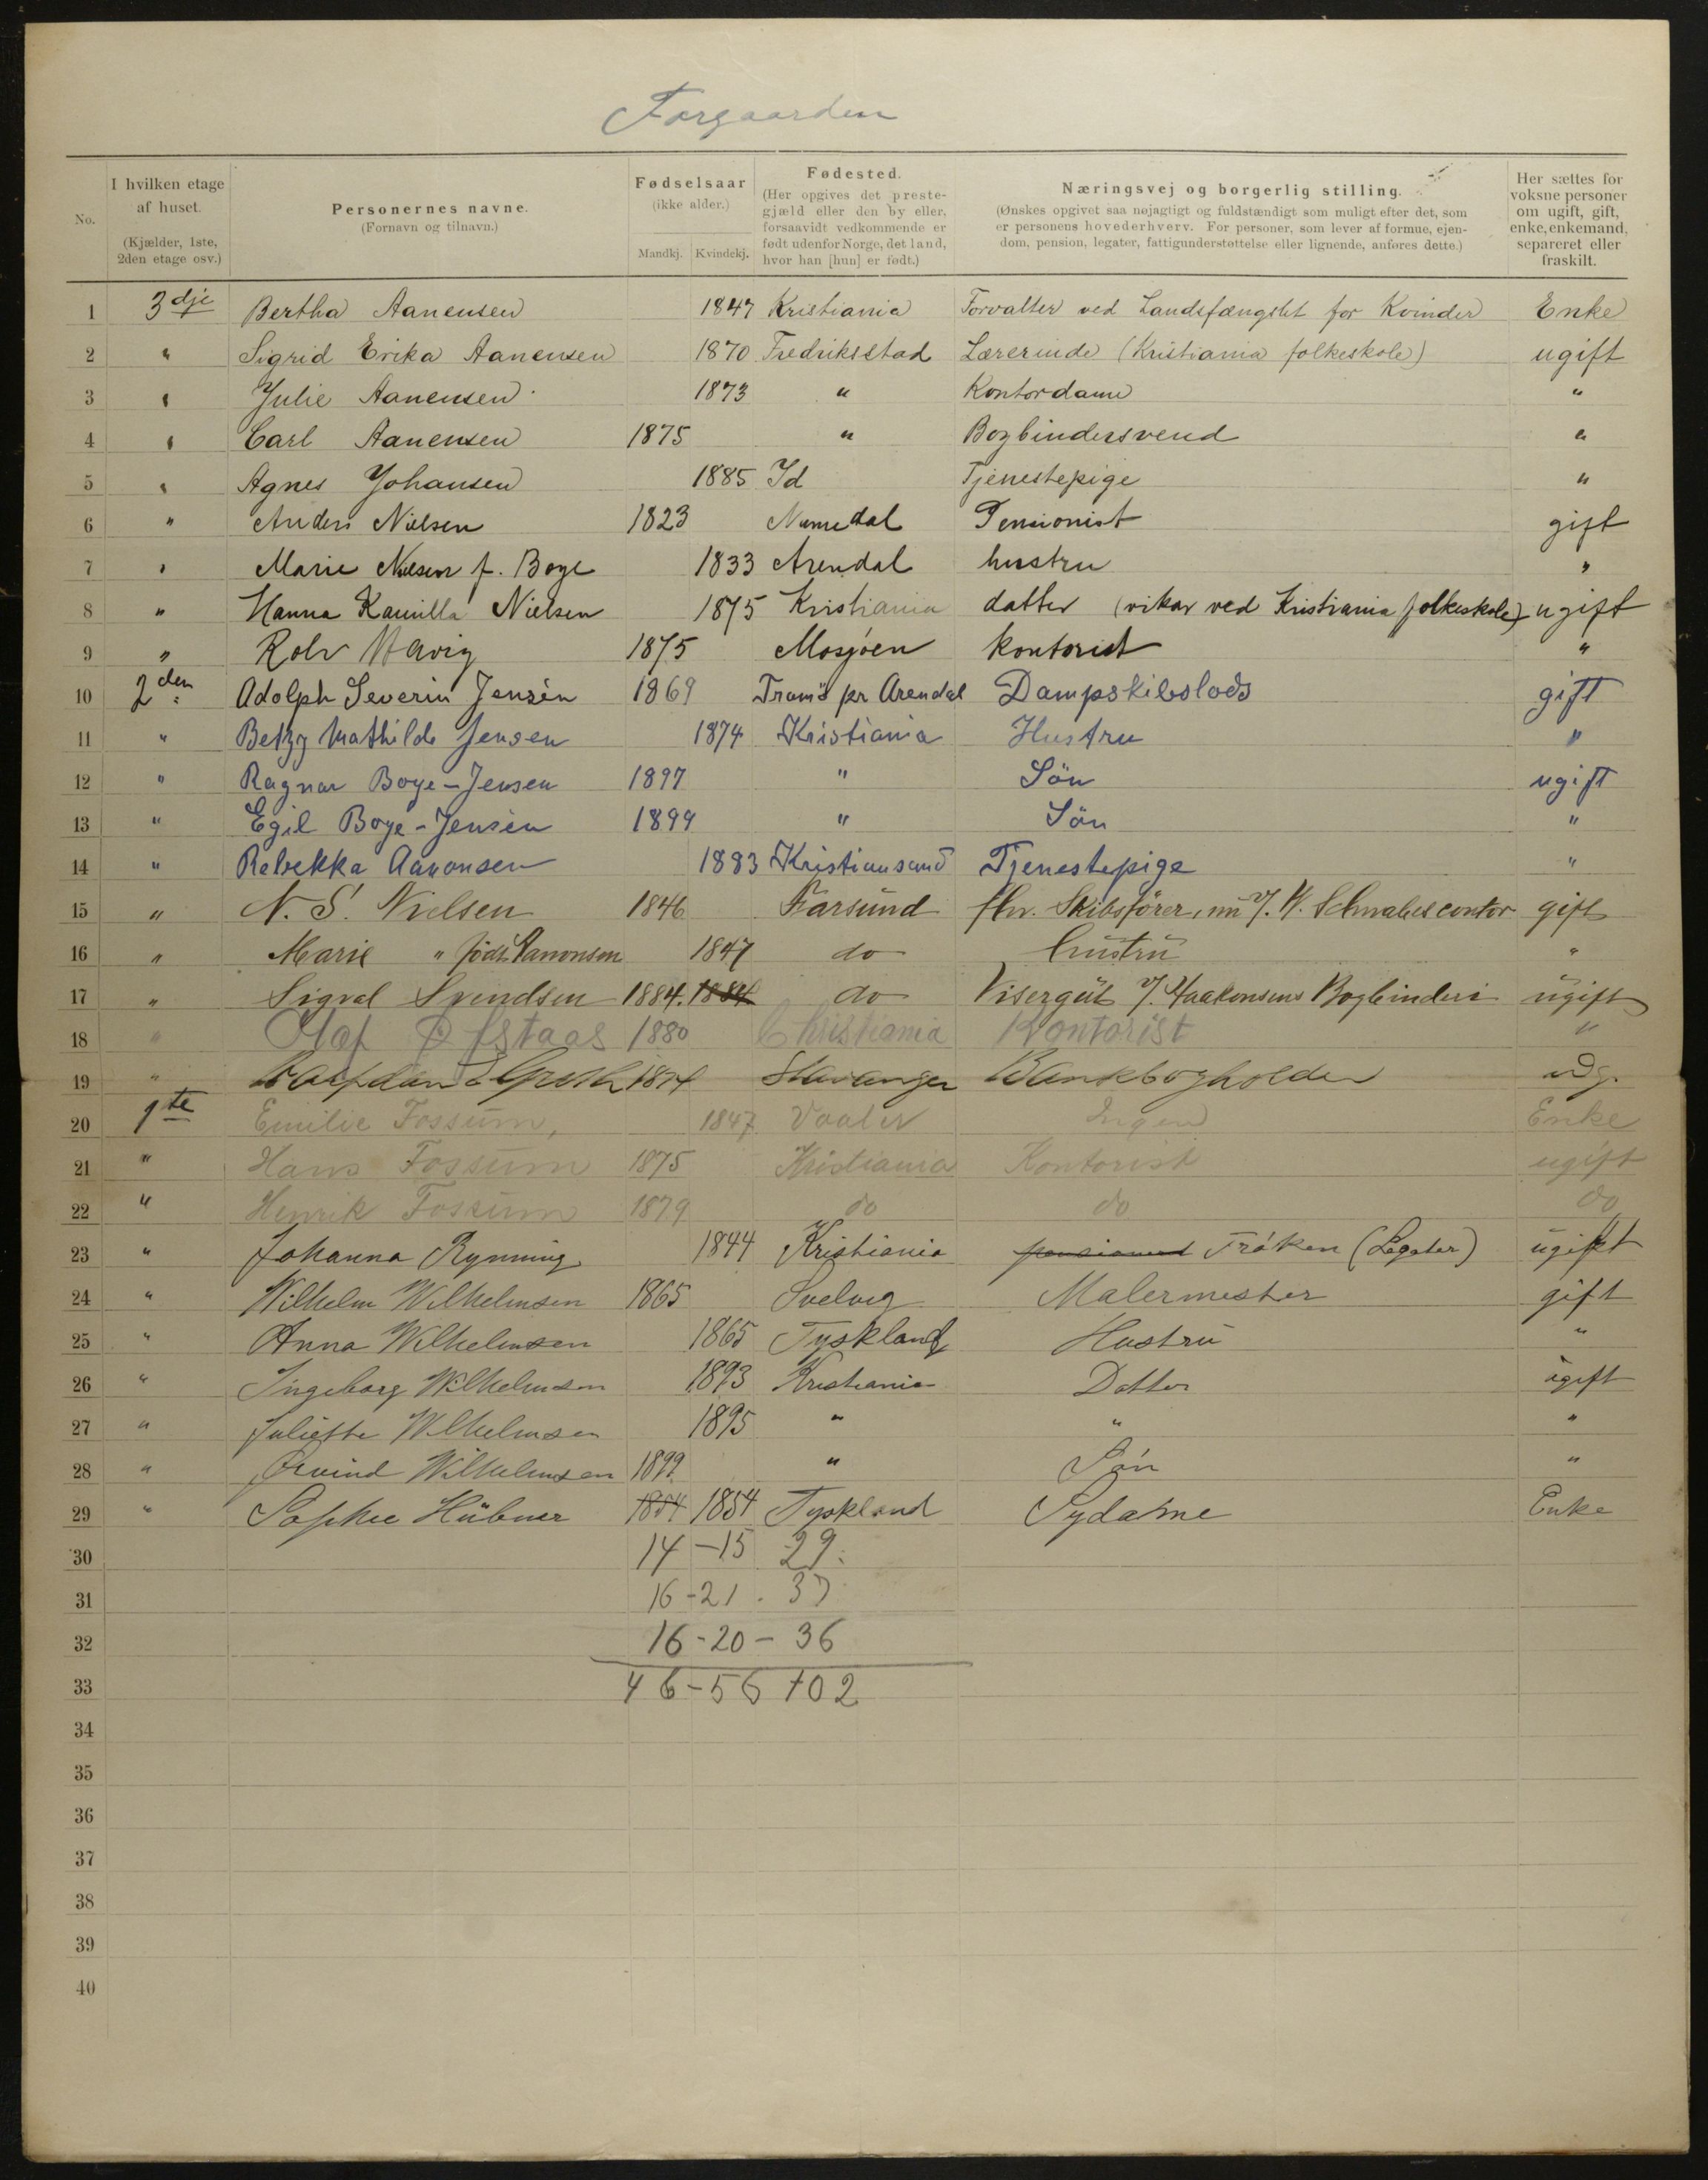 Forgaarden
No. I hvilken etage af huset. (Kjælder, 1ste, 2den etage osv.) Personernes navne. (Fornavn og tilnavn.) Fødselsaar (ikke alder.) Mandkj. Kvindekj. Fødested. (Her opgives det prestegjæld eller den by eller, forsaavidt vedkommende er født udenfor Norge, det land, hvor han [hun] er født.) Næringsvej og borgerlig stilling. (Ønskes opgivet saa nøjagtigt og fuldstændigt som muligt efter det, som er personens hovederhverv. For personer, som lever af formue, ejendom, pension, legater, fattigunderstøttelse eller lignende, anføres dette.) Her sættes for voksne personer om ugift, gift, enke, enkemand, separeret eller fraskilt.
1 3dje Bertha Aanensen 1847 Kristiania Forvalter ved Landsfængslet for Kvinder Enke
2 " Sigrid Erika Aanensen 1870 Fredriksstad Lærerinde (Kristiania folkeskole) ugift
3 " Julie Aanensen 1873 " Kontordame "
4 " Carl Aanensen 1875 " Bogbindersvend "
5 " Agnes Johansen 1885 Id Tjenestepige "
6 " Anders Nielsen 1823 Numedal Pensionist gift
7 " Marie Nielsen f. Boye 1833 Arendal hustru "
8 " Hanna Kamilla Nielsen 1875 Kristiania datter (vikar ved Kristiania folkeskole) ugift
9 " Rolv 1875 Mosjøen kontorist "
10 2den Adolph Severin Jensen 1869 Tromö pr Arendal Dampskibslods gift
11 " Betzy Mathilde Jensen 1874 Kristiania Hustru "
12 " Ragnar Boye-Jensen 1897 " Sön ugift
13 " Egil Boye-Jensen 1899 " Sön "
14 " Rebekka Aanonsen 1883 Kristiansand Tjenestepige "
15 " N. S. Nielsen 1846 Farsund fhv. Skibsförer, nu contor gift
16 " Marie " född Aanonsen 1847 do hustru "
17 " Sigval Svendsen 1884. 1884 do Visergut v/. Haakonsens Bogbinderi ugift
18 " Olaf Øfstaas 1880 Christiania Kontorist "
19 " 1874 Stavanger Bankbogholder ug.
20 1te Emilie Fossum, 1847 Vaaler Ingen Enke
21 " Hans Fossum 1875 Kristiania Kontorist ugift
22 " Henrik Fossum 1879 do do do
23 " Johanna Rynning 1844 Kristiania pensionist Fröken (Legater) ugift
24 " Wilhelm Wilhelmsen 1865 Svelvig Malermester gift
25 " Anna Wilhelmsen 1865 Tyskland Hustru "
26 " Ingeborg Wilhelmsen 1893 Kristiania Datter ugift
27 " Juliette Wilhelmsen 1895 " " "
28 " Øivind Wilhelmsen 1899 " Sön "
29 " Sophie Hübner 1854 1854 Tyskland Sydame Enke
30 14 - 15 29.
31 16 - 21 . 37
32 16 - 20 - 36
33 46 - 56 102
34
35
36
37
38
39
40